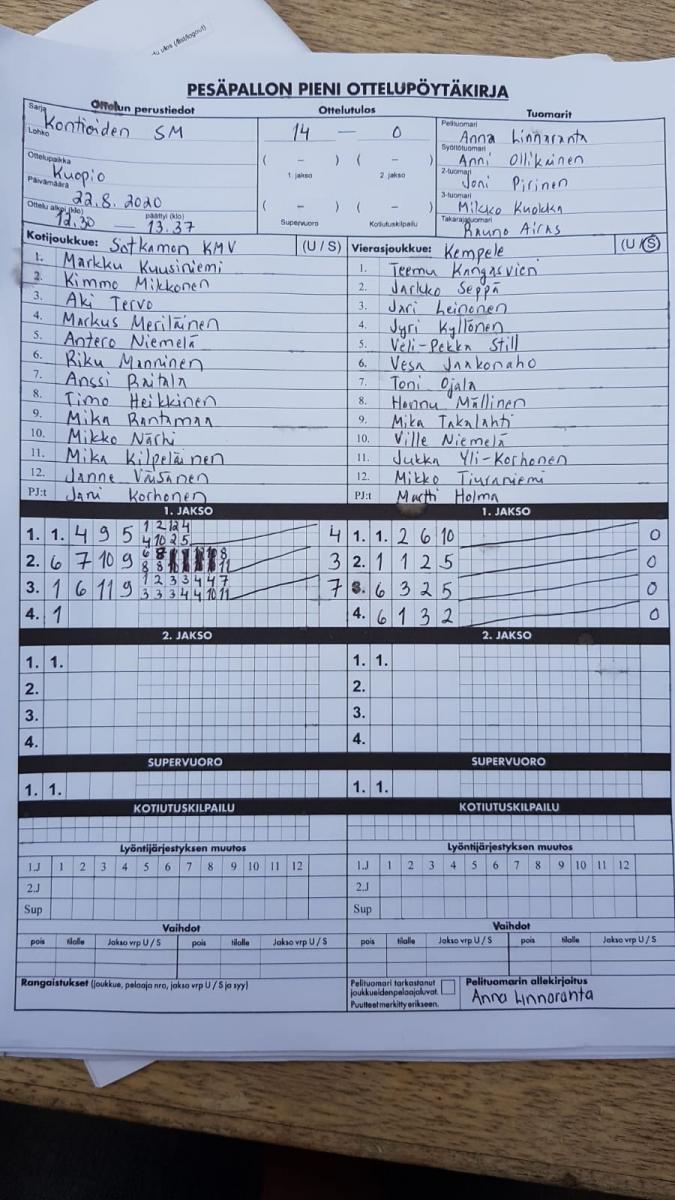 PESÄPALLON PIENI OTTELUPÖYTÄKIRJA
Ottelun perustiedot
Sarja
Kontioiden SM
Lohko
Ottelupaikka
Kuopio
Päivämäärä
22.8.2020
Ottelu alkoi (klo) päättyi (klo)
12.30 — 13.37
Ottelutulos
14 — 0
( – ) ( – )
1. jakso 2. jakso
( – ) ( – )
Supervuoro Kotiutuskilpailu
Tuomarit
Pelituomari
Anna Linnaranta
Syöttötuomari
Anni Ollikainen
2-tuomari
Joni Pirinen
3-tuomari
Mikko Kuokka
Takarajatuomari
Rauno Airas
Kotijoukkue: Sotkamon KMV (U / S)
1. Markku Kuusiniemi
2. Kimmo Mikkonen
3. Aki Tervo
4. Markus Meriläinen
5. Antero Niemelä
6. Riku Manninen
7. Anssi Raitala
8. Timo Heikkinen
9. Mika Rantamaa
10. Mikko Närhi
11. Mika Kilpeläinen
12. Janne Väisänen
PJ:t Jani Korhonen
Vierasjoukkue: Kempele (U / S)
1. Teemu Kangasvieri
2. Jarkko Seppä
3. Jari Leinonen
4. Jyri Kyllönen
5. Veli-Pekka Still
6. Vesa Jaakonaho
7. Toni Ojala
8. Hannu Mällinen
9. Mika Takalahti
10. Ville Niemelä
11. Jukka Yli-Korhonen
12. Mikko Tiuraniemi
PJ:t Martti Holma
1. JAKSO
1. 1. 4 9 5 1 2 12 4 4
4 10 2 5
2. 6 7 10 9 3
3. 1 6 11 9 1 2 3 3 4 4 7 7
3 3 3 4 4 10 11
4. 1
1. JAKSO
1. 1. 2 6 10 0
2. 1 1 2 5 0
3. 6 3 2 5 0
4. 6 1 3 2 0
2. JAKSO
1. 1.
2.
3.
4.
2. JAKSO
1. 1.
2.
3.
4.
SUPERVUORO
1. 1.
SUPERVUORO
1. 1.
KOTIUTUSKILPAILU
KOTIUTUSKILPAILU
Lyöntijärjestyksen muutos
1.J 1 2 3 4 5 6 7 8 9 10 11 12
2.J
Sup
Lyöntijärjestyksen muutos
1.J 1 2 3 4 5 6 7 8 9 10 11 12
2.J
Sup
Vaihdot
pois tilalle Jakso vrp U / S pois tilalle Jakso vrp U / S
Vaihdot
pois tilalle Jakso vrp U / S pois tilalle Jakso vrp U / S
Rangaistukset (joukkue, pelaaja nro, jakso vrp U / S ja syy)
Pelituomari tarkastanut
joukkueiden pelaajaluvat.
Puutteet merkitty erikseen.
Pelituomarin allekirjoitus
Anna Linnaranta